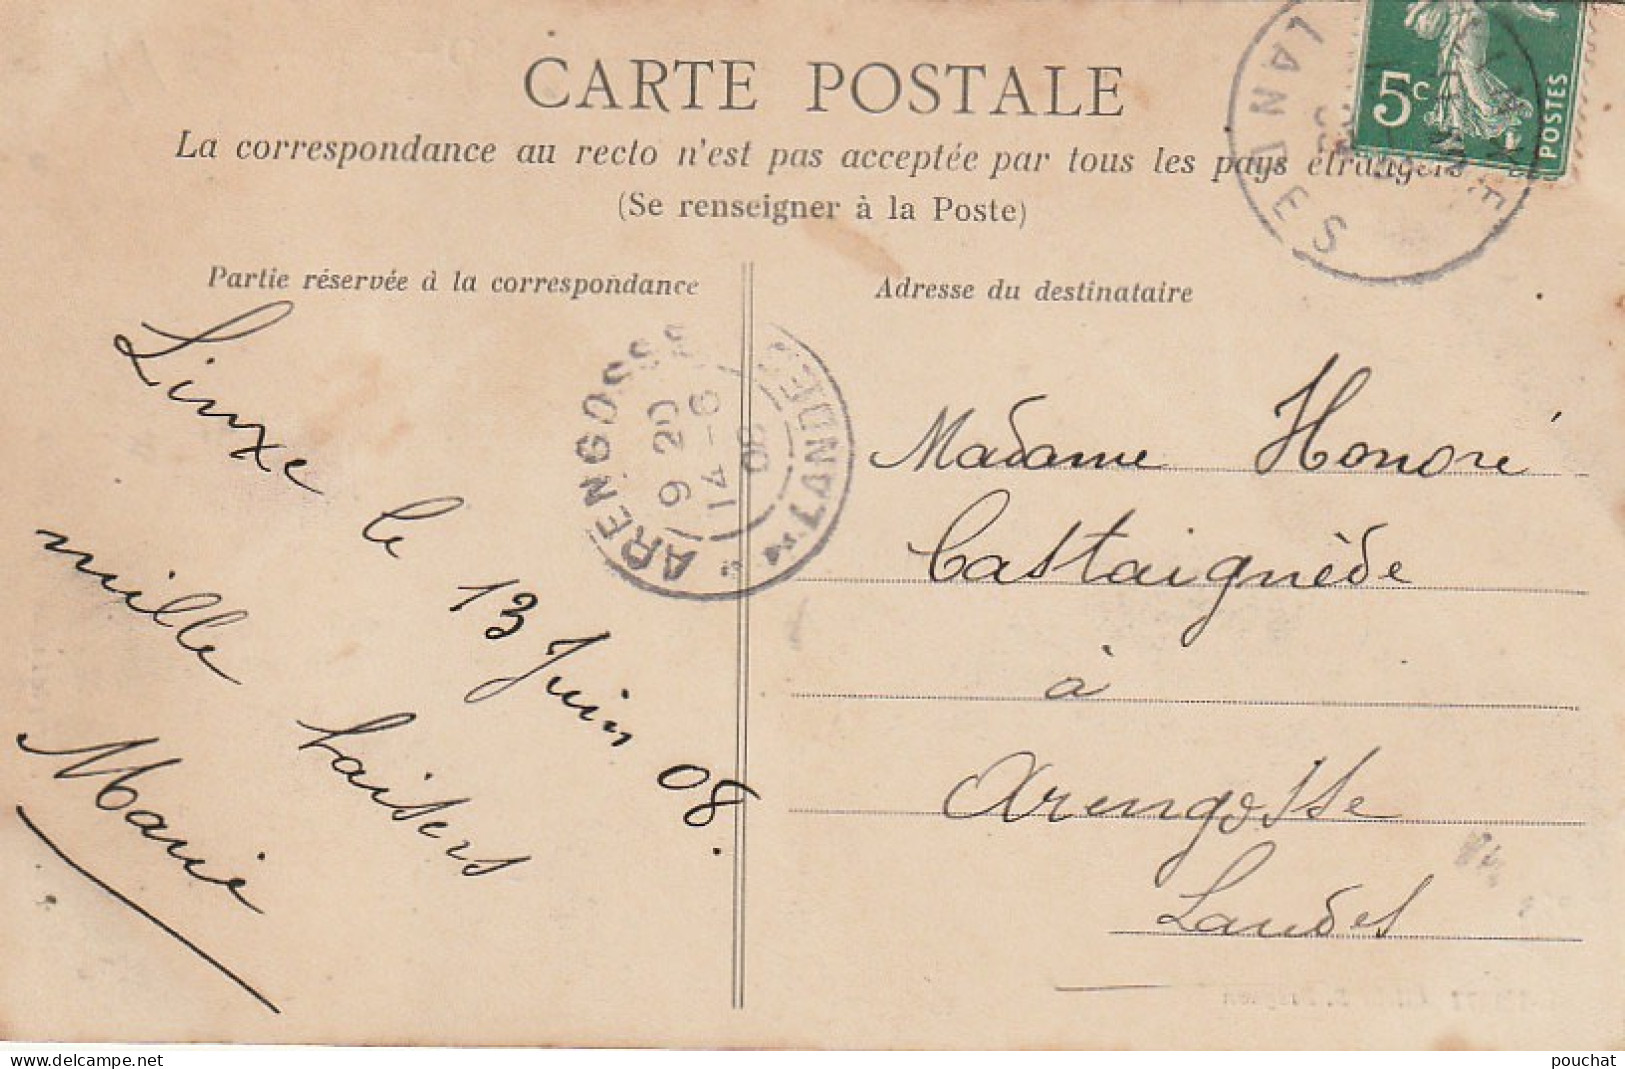 CARTE POSTALE
La correspondance au recto n'est pas acceptée par tous les pays étrangers
(Se renseigner à la Poste)
LANDES
5c
POSTES
Partie réservée à la correspondance
Linxe le 13 Juin 08.
mille baisers
Marie
ARENGOSSE
9 20
14 - 6
08
LANDES
Adresse du destinataire
Madame Honoré
Castaignède
à
Arengosse
Landes
delcampe.net
pouchat